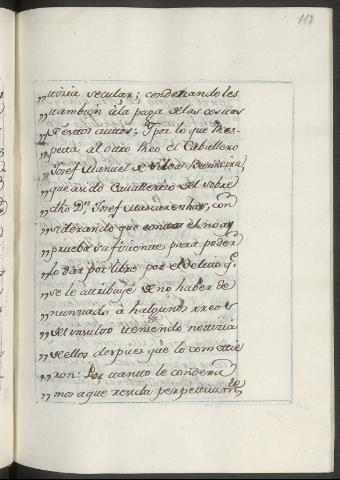 118
,, ttoria secular; condenando les
,, ttambien â la paga de las costtas
,, de esttos auttos; Y por lo que Res-
,, pectta al ottro Reo el Caballero
,, Josef Manuel de Bandeira,
,, que â sido Cavallerizo del sobre
,, dho Dn. Josef Mascarenhas, con
,, siderando que conttra el no ay
,, prueba suficiente para poder
,, lo dar por libre por el delitto qe.
,, se le attribuye de no haber de
,, nunciado a halgunos rreos
,, del insultto tteniendo notticia
,, de ellos despues que lo comettie
,, ron: Por ttantto le condena
,, mos a que resida perpettuamte.